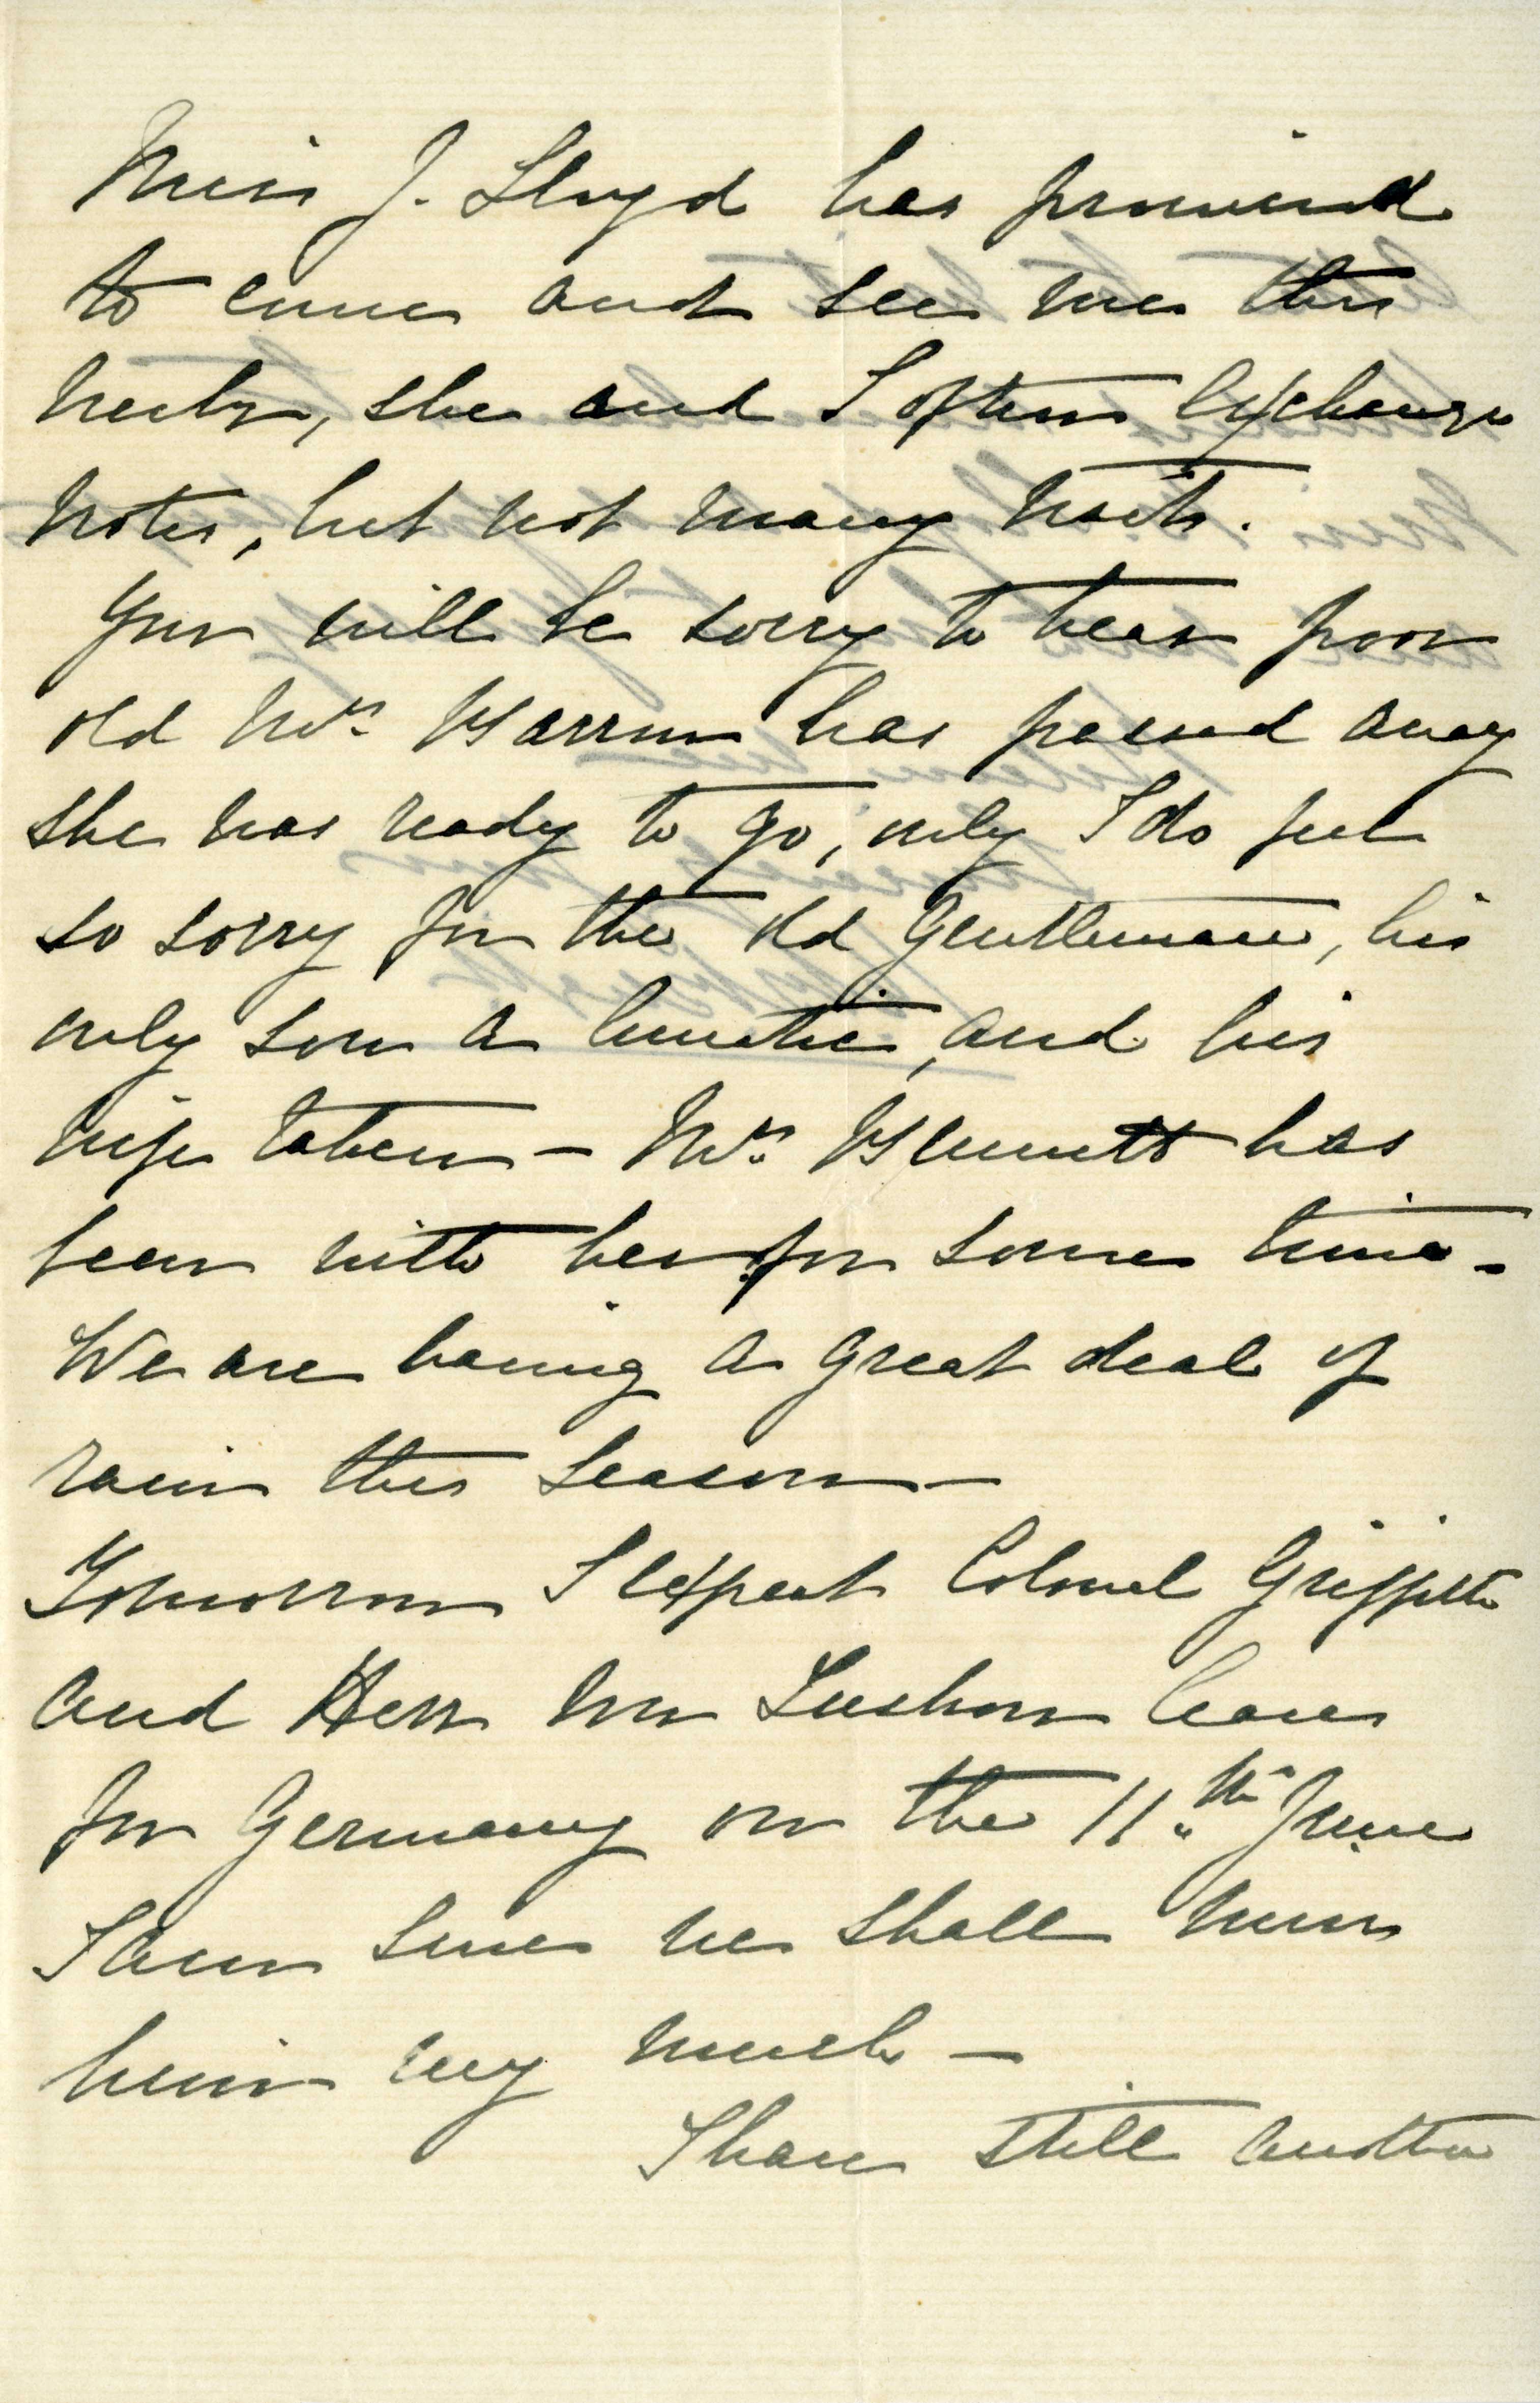 Miss J. Lloyd has promised
to come and see me this
week, she and I often exchange
notes, but not many visits.
You will be sorry to hear poor
old Mrs Barron has passed away
she was ready to go, only I do feel
so sorry for the old gentleman, his
only son a lunatic, and his
wife taken – Mrs Bennett has
been with her for some time –
We are having a great deal of
rain this season –
Tomorrow I expect Colonel Griffith
and Herr von Luschan leaves
for Germany on the 11th June
I am sure we shall miss
him very much –
I have still another